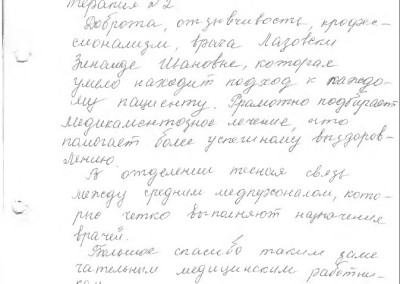 терапия №2
Доброта, отзывчивость, профес-
сионализм, врача Лазовски
Зинаиде Ивановне, которая
умело находит подход к каждо-
му пациенту. Грамотно подбирает
медикаментозное лечение, что
помогает более успешному выздоров-
лению.
В отделении тесная связь
между средним медперсоналом, кото-
рые четко выполняют назначения
врачей.
Большое спасибо таким заме
чательным медицинским работни-
кам